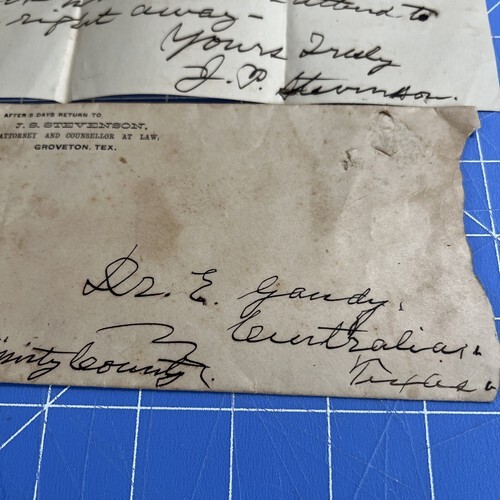 attend to
right away -
Yours Truly
J. S. Stevenson.
AFTER 5 DAYS RETURN TO
J. S. STEVENSON,
ATTORNEY AND COUNSELLOR AT LAW,
GROVETON, TEX.
Dr. E. Gandy,
Centralia,
Texas
County